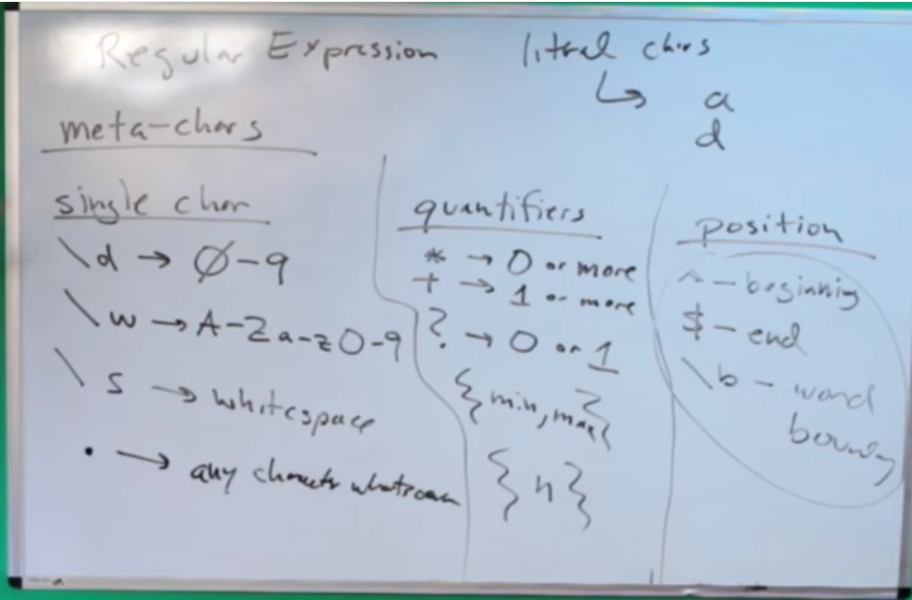 Regular Expression
literal chars
↳ a
d
meta-chars
single char
\d → 0-9
\w → A-Za-z0-9
\s → whitespace
. → any whatsoever
quantifiers
* → 0 or more
+ → 1 or more
? → 0 or 1
{min,max}
{n}
position
^ - beginning
$ - end
\b - word
boundary